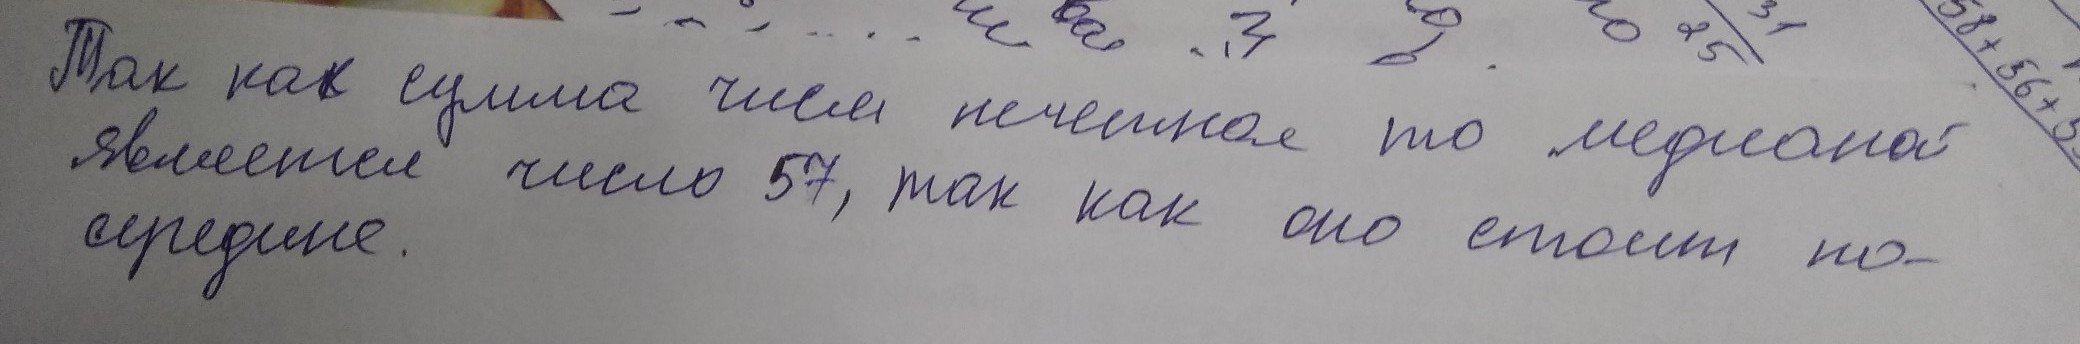 31
25
58+56+5
Так как сумма чисел нечетная то медианой
является число 57, так как оно стоит по-
середине.